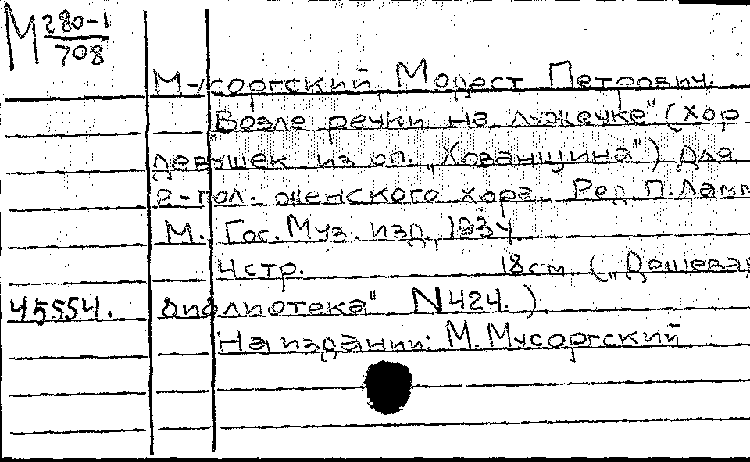 М 280-1
708
Мусоргский, Модест Петрович.
Возле речки на лужечке" (Хор
девушек из оп. „Хованщина") Для
2-гол. женского хора. Ред. П. Ламм
М. Гос. Муз. изд., 1934
4 стр. 18 см. („Дешевая
45554. библиотека" N 424.)
На издании: М. Мусоргский